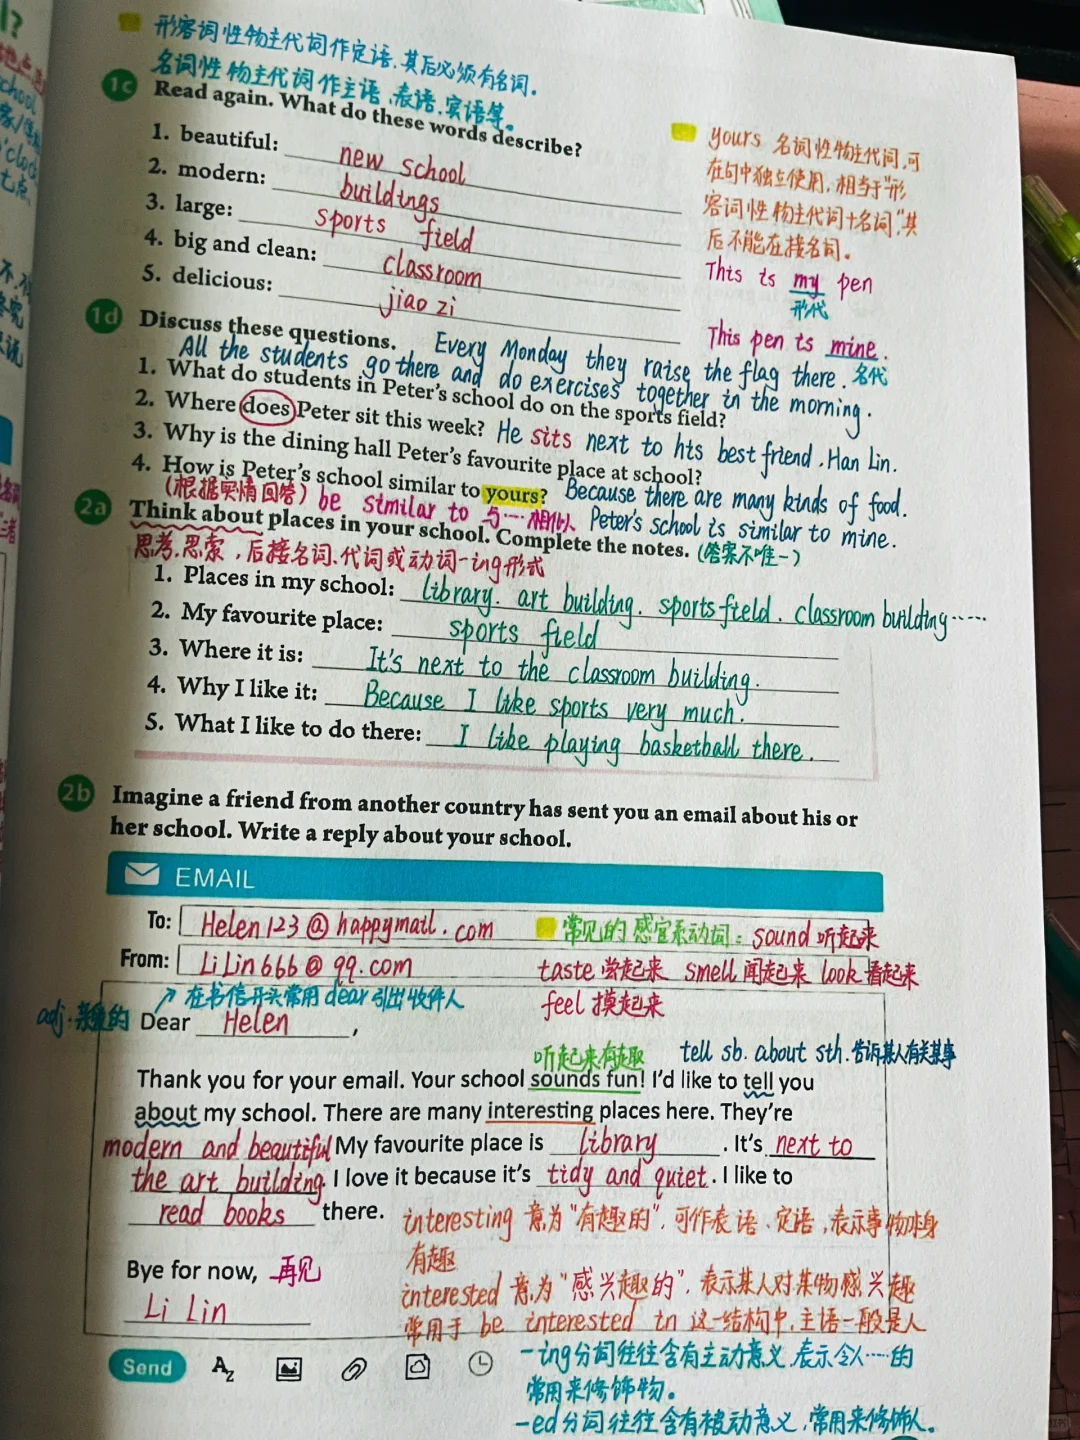 形容词性物主代词作定语,其后必须有名词。
名词性物主代词作主语、表语、宾语等。
1c Read again. What do these words describe?
1. beautiful: new school
2. modern: buildings
3. large: sports field
4. big and clean: classroom
5. delicious: jiao zi
yours 名词性物主代词,可
在句中独立使用,相当于"形
容词性物主代词+名词",其
后不能在接名词。
This is my pen
形代
This pen is mine.
名代
1d Discuss these questions.
Every Monday they raise the flag there.
All the students go there and do exercises together in the morning.
1. What do students in Peter's school do on the sports field?
2. Where does Peter sit this week? He sits next to his best friend, Han Lin.
3. Why is the dining hall Peter's favourite place at school?
Because there are many kinds of food.
4. How is Peter's school similar to yours?
(根据实情回答) be similar to 与…相似 Peter's school is similar to mine.
2a Think about places in your school. Complete the notes. (答案不唯一)
思考,思索,后接名词、代词或动词-ing形式
1. Places in my school: library. art building. sports field. classroom building……
2. My favourite place: sports field
3. Where it is: It's next to the classroom building.
4. Why I like it: Because I like sports very much.
5. What I like to do there: I like playing basketball there.
2b Imagine a friend from another country has sent you an email about his or
her school. Write a reply about your school.
EMAIL
To: Helen123@happymail.com
From: LiLin666@qq.com
常见的感官系动词: sound 听起来
taste 尝起来 smell 闻起来 look 看起来
feel 摸起来
在书信开头常用dear引出收件人
adj.亲爱的 Dear Helen,
听起来有趣 tell sb. about sth.告诉某人有关某事
Thank you for your email. Your school sounds fun! I'd like to tell you
about my school. There are many interesting places here. They're
modern and beautiful My favourite place is library. It's next to
the art building. I love it because it's tidy and quiet. I like to
read books there.
interesting 意为"有趣的",可作表语、定语,表示事物本身
有趣
Bye for now, 再见
Li Lin
interested 意为"感兴趣的",表示某人对某物感兴趣
常用于 be interested in 这一结构中,主语一般是人
-ing分词往往含有主动意义,表示令人……的
常用来修饰物。
-ed分词往往含有被动意义,常用来修饰人。
Send AZ